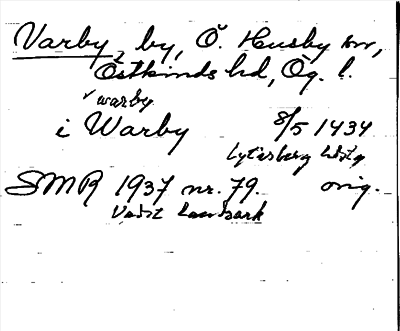 Varby, by, Ö. Husby sn,
Östkinds hd, Ög. l.
warby
i Warby 8/5 1434
Lytisberg
SMR 1937 nr. 79. orig.